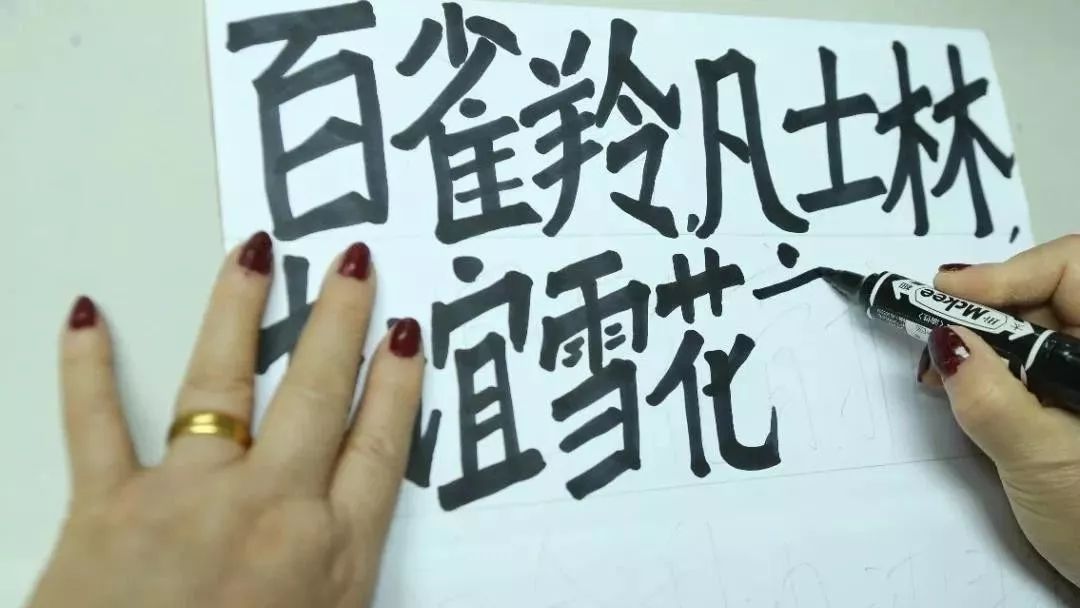 百雀羚,凡士林,
谊雪花
Mckee